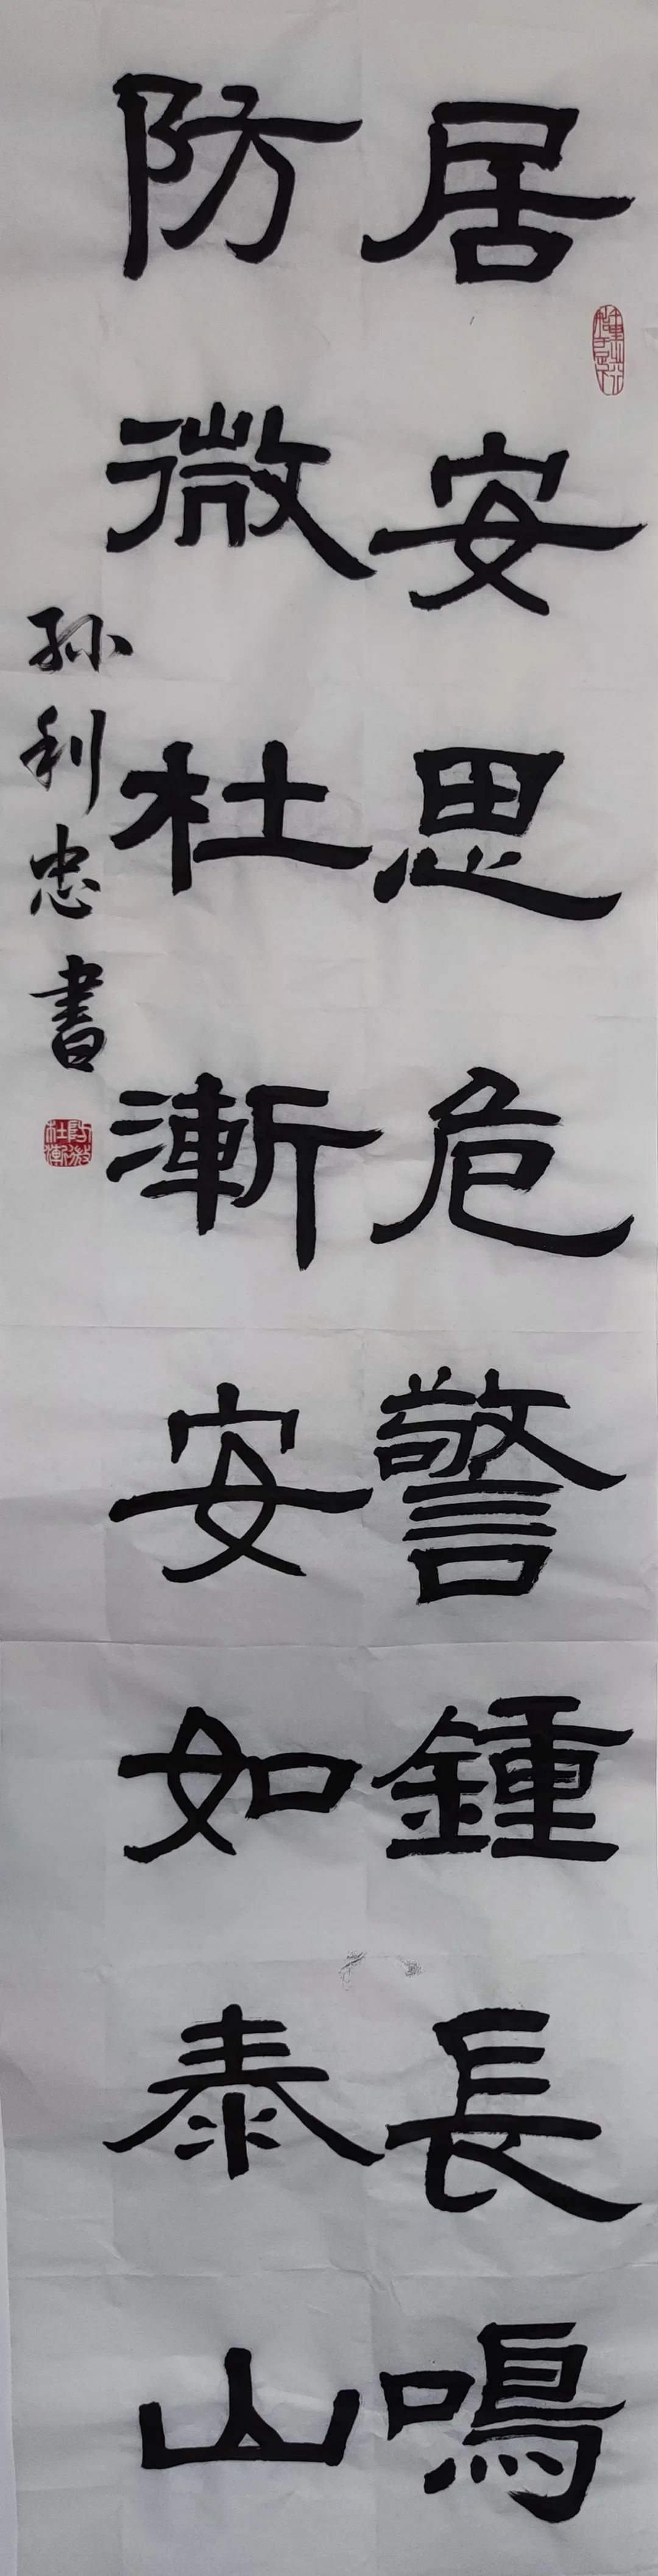 居安思危警鍾長鳴
防微杜漸安如泰山
孙利忠書
防微杜漸